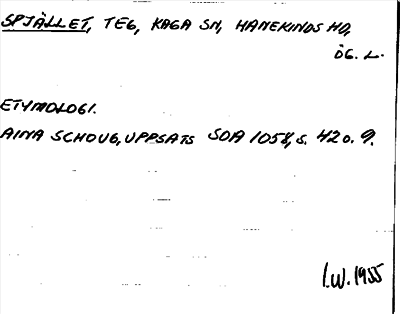 SPJÄLLET, TEG, KAGA SN, HANEKINDS HD,
ÖG. L.
ETYMOLOGI.
AINA SCHOUG, UPPSATS SOA 1058, s. 42 o. 9.
I.W. 1955